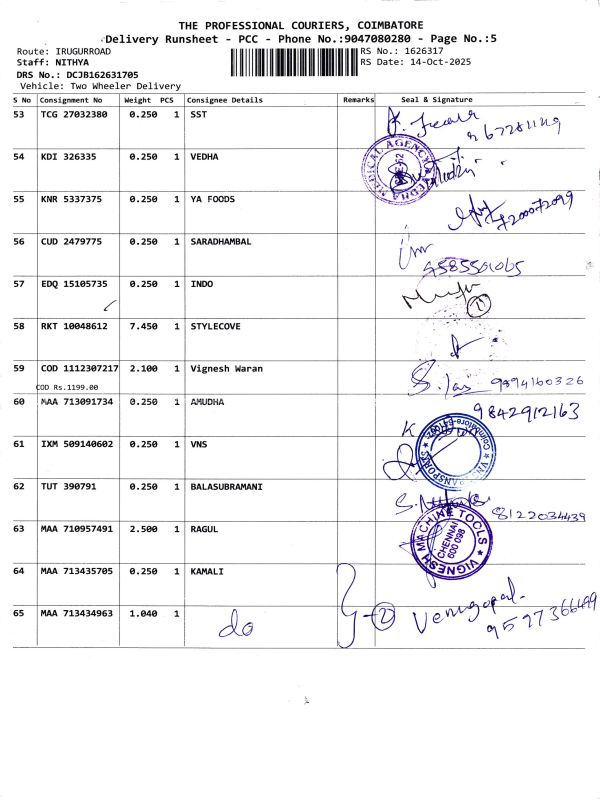 THE PROFESSIONAL COURIERS, COIMBATORE
Delivery Runsheet - PCC - Phone No.:9047080280 - Page No.:5
Route: IRUGURROAD RS No.: 1626317
Staff: NITHYA RS Date: 14-Oct-2025
DRS No.: DCJB162631705
Vehicle: Two Wheeler Delivery
S No Consignment No Weight PCS Consignee Details Remarks Seal & Signature
53 TCG 27032380 0.250 1 SST
54 KDI 326335 0.250 1 VEDHA
MEDICAL AGENCY
55 KNR 5337375 0.250 1 YA FOODS
56 CUD 2479775 0.250 1 SARADHAMBAL
9585501065
57 EDQ 15105735 0.250 1 INDO
1
58 RKT 10048612 7.450 1 STYLECOVE
59 COD 1112307217 2.100 1 Vignesh Waran
COD Rs.1199.00 9894160326
60 MAA 713091734 0.250 1 AMUDHA 9842912163
61 IXM 509140602 0.250 1 VNS
62 TUT 390791 0.250 1 BALASUBRAMANI
8122034439
63 MAA 710957491 2.500 1 RAGUL
VIGNESH MACHINE TOOLS
CHENNAI
600 098
64 MAA 713435705 0.250 1 KAMALI
65 MAA 713434963 1.040 1 do 2 Venugopal.
9527366499